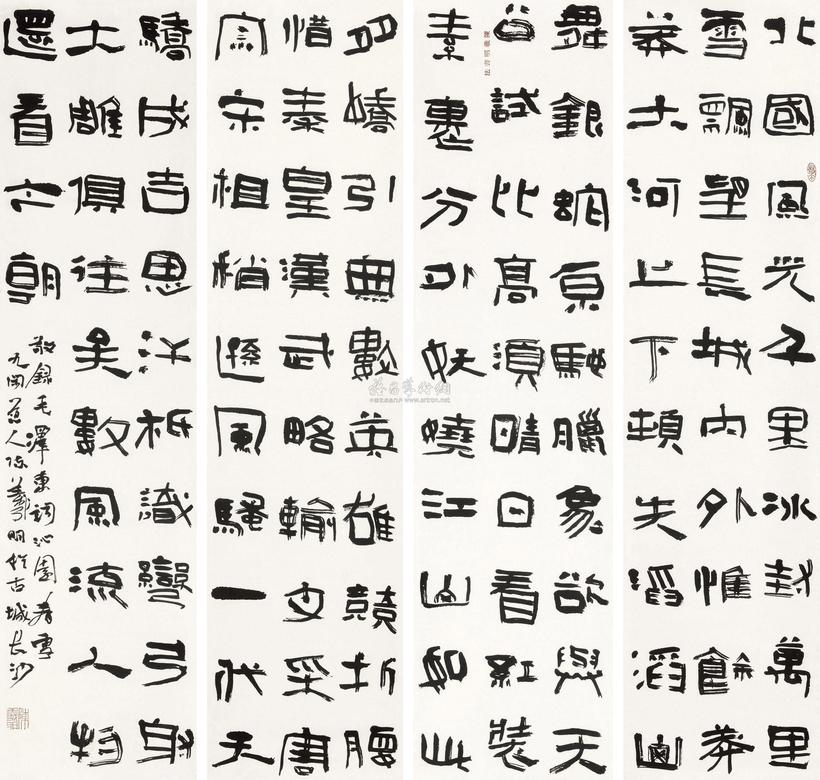 北國風光千里冰封萬里
雪飄望長城內外惟餘莽
莽大河上下頓失滔滔山
舞銀蛇原馳臘象欲與天
公試比高須晴日看紅裝
素裹分外妖嬈江山如此
多嬌引無數英雄競折腰
惜秦皇漢武略輸文采唐
宗宋祖稍遜風騷一代天
驕成吉思汗祗識彎弓射
大雕俱往矣數風流人物
還看今朝
敬錄毛澤東詞沁園春雪
九岡人陳羲明於古城長沙
雅昌藝術網